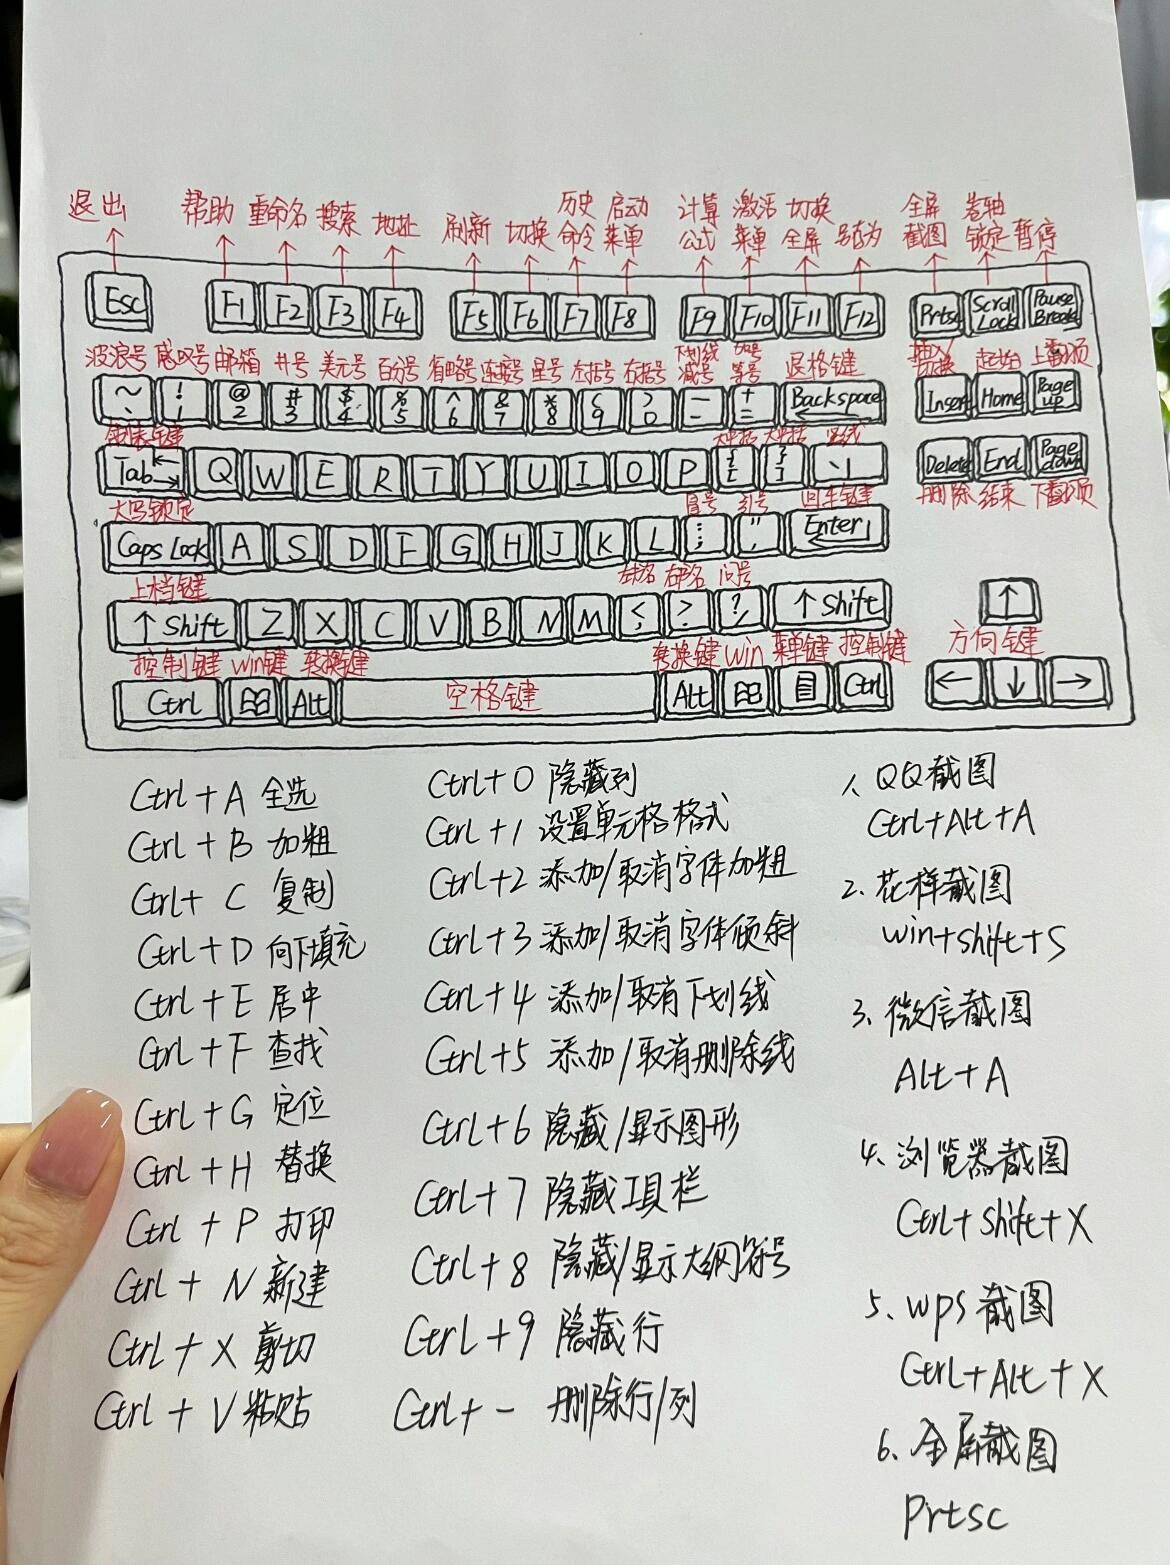 退出 帮助 重命名 搜索 地址 刷新 切换 历史命令 启动菜单 计算公式 激活菜单 切换全屏 另存为 全屏截图 卷轴锁定 暂停
Esc F1 F2 F3 F4 F5 F6 F7 F8 F9 F10 F11 F12 Prtsc Scroll Lock Pause Break
波浪号 感叹号 邮箱 井号 美元号 百分号 省略号 连接号 星号 左括号 右括号 下划线减号 加号等号 退格键 插入/切换 起始 上翻页
~ ` ! 1 @ 2 # 3 $ 4 % 5 ^ 6 & 7 * 8 ( 9 ) 0 _ - + = Backspace Insert Home Page up
制表键 大括 大括 竖线
Tab Q W E R T Y U I O P { [ } ] \ | Delete End Page down
大写锁定 冒号 引号 回车键 删除 结束 下翻页
Caps Lock A S D F G H J K L : ; " ' Enter
上档键 左书名 右书名 问号
↑ Shift Z X C V B N M < , > . ? / ↑ Shift ↑
控制键 win键 转换键 转换键 win 菜单键 控制键 方向键
Ctrl Alt 空格键 Alt Ctrl ← ↓ →
Ctrl + A 全选
Ctrl + B 加粗
Ctrl + C 复制
Ctrl + D 向下填充
Ctrl + E 居中
Ctrl + F 查找
Ctrl + G 定位
Ctrl + H 替换
Ctrl + P 打印
Ctrl + N 新建
Ctrl + X 剪切
Ctrl + V 粘贴
Ctrl + 0 隐藏列
Ctrl + 1 设置单元格格式
Ctrl + 2 添加/取消字体加粗
Ctrl + 3 添加/取消字体倾斜
Ctrl + 4 添加/取消下划线
Ctrl + 5 添加/取消删除线
Ctrl + 6 隐藏/显示图形
Ctrl + 7 隐藏工具栏
Ctrl + 8 隐藏/显示大纲符号
Ctrl + 9 隐藏行
Ctrl + - 删除行/列
1、QQ截图
Ctrl+Alt+A
2、花样截图
win+shift+S
3、微信截图
Alt+A
4、浏览器截图
Ctrl+shift+X
5、wps截图
Ctrl+Alt+X
6、全屏截图
Prtsc